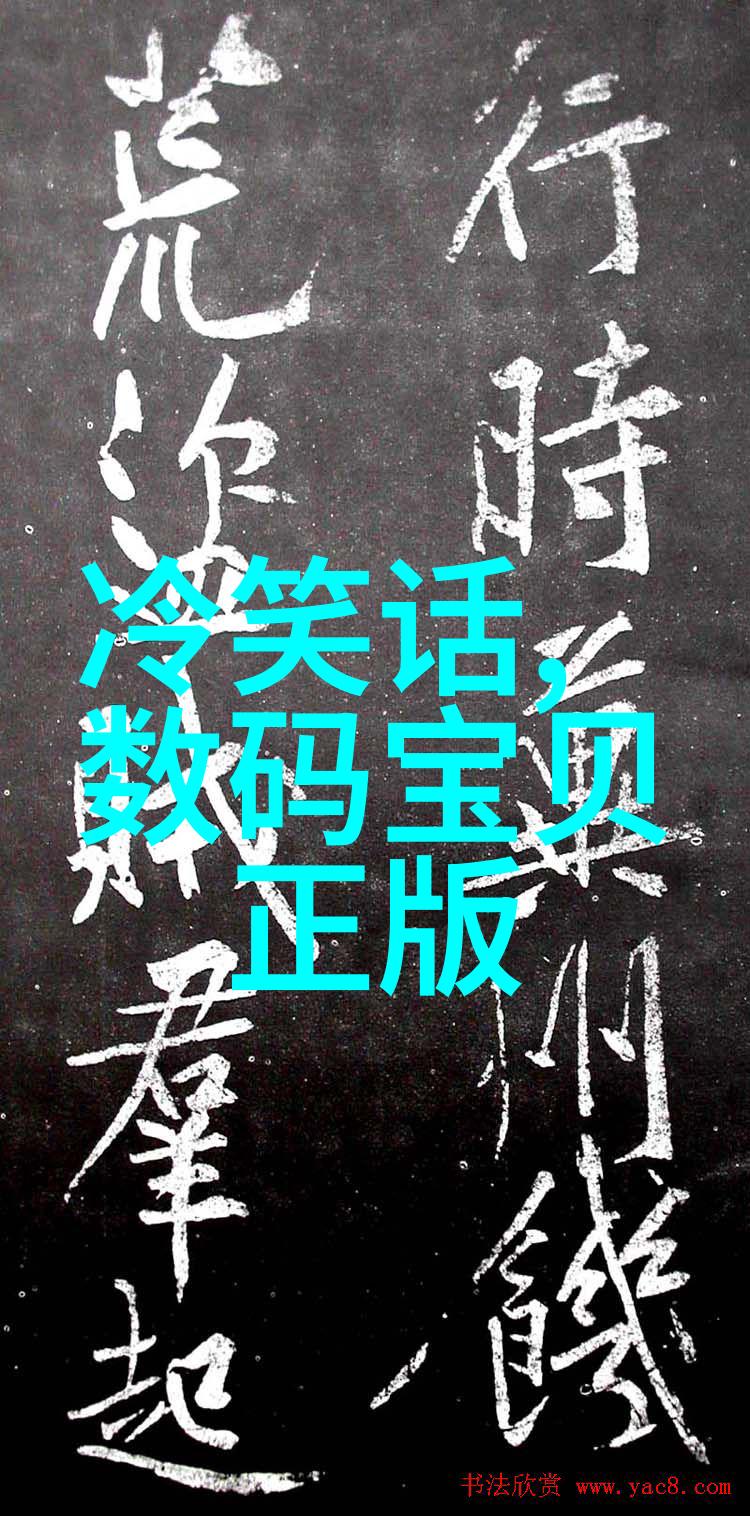 行時州饑
荒盗賊羣起
冷笑话,
数码宝贝
正版
书法欣赏 www.yac8.com